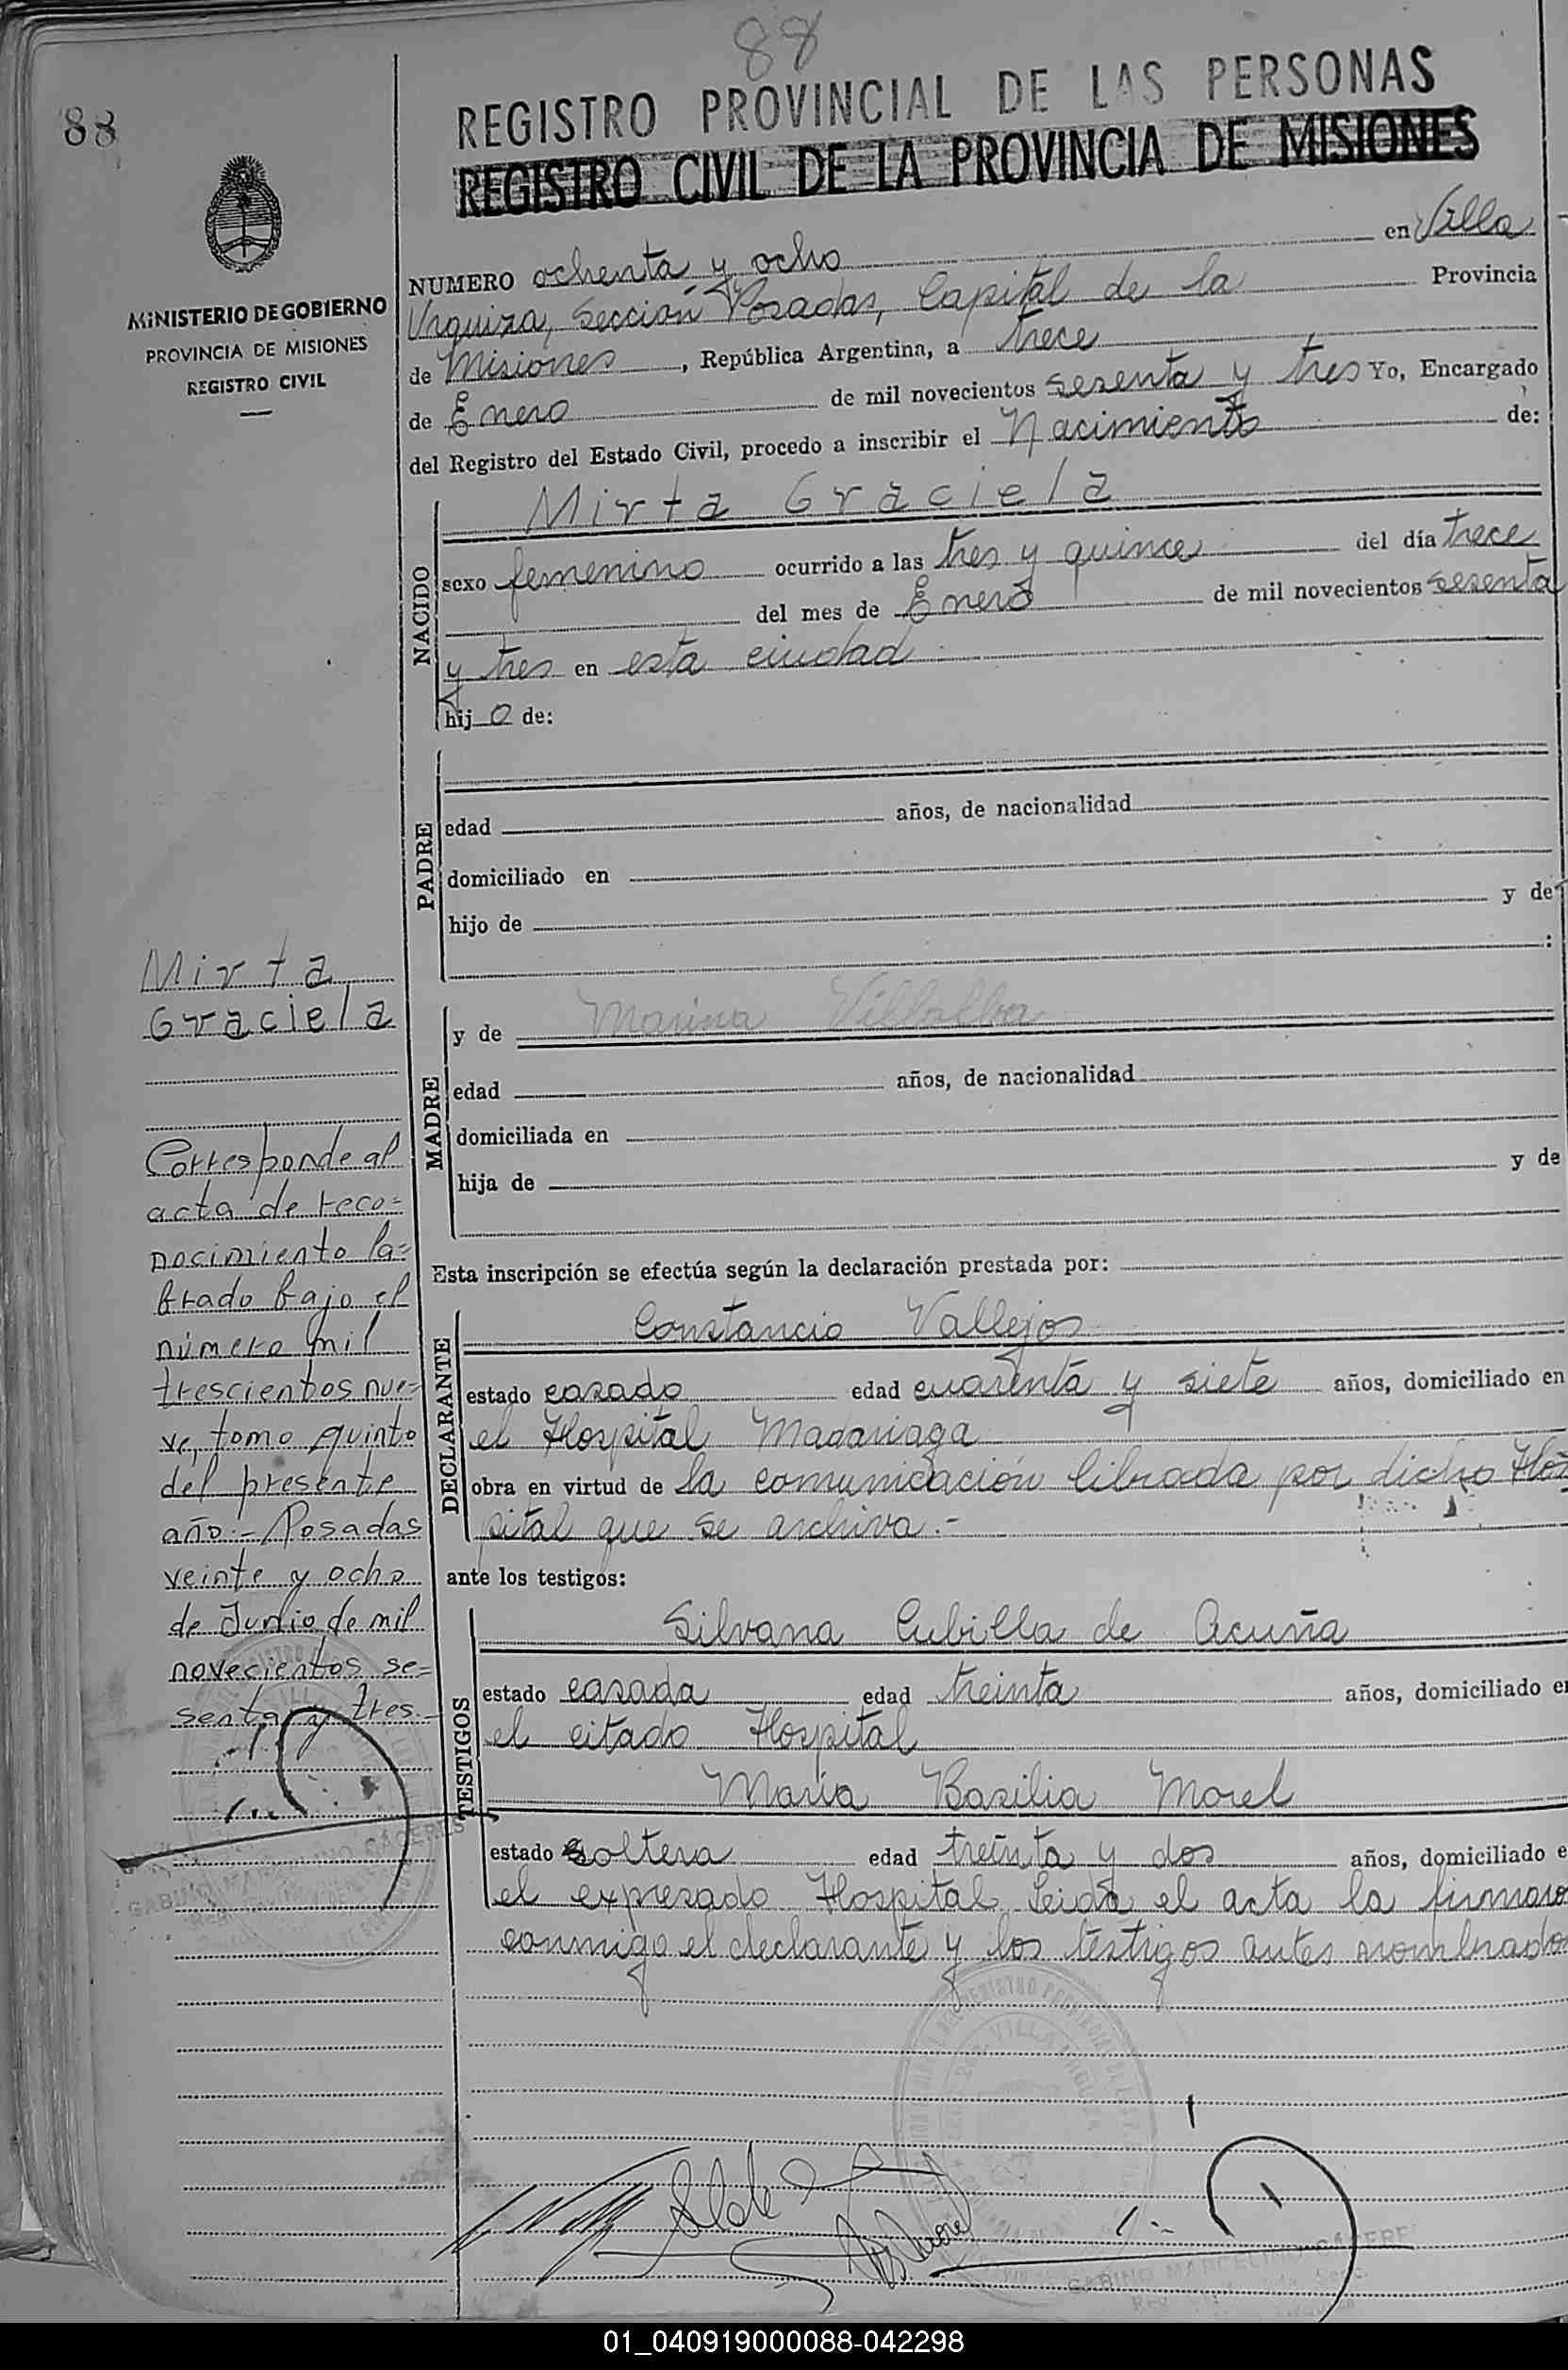 88
88
REGISTRO PROVINCIAL DE LAS PERSONAS
REGISTRO CIVIL DE LA PROVINCIA DE MISIONES
MINISTERIO DE GOBIERNO
PROVINCIA DE MISIONES
REGISTRO CIVIL
NUMERO ochenta y ocho en Villa
Urquiza, Sección Posadas, Capital de la Provincia
de Misiones, República Argentina, a trece
de Enero de mil novecientos sesenta y tres Yo, Encargado
del Registro del Estado Civil, procedo a inscribir el Nacimiento de:
NACIDO
Mirta Graciela
sexo femenino ocurrido a las tres y quince del día trece
del mes de Enero de mil novecientos sesenta
y tres en esta ciudad
hijo de:
PADRE
edad años, de nacionalidad
domiciliado en
hijo de y de
:
MADRE
y de Marina Villalba
edad años, de nacionalidad
domiciliada en
hija de y de
Esta inscripción se efectúa según la declaración prestada por:
DECLARANTE
Constancio Vallejos
estado casado edad cuarenta y siete años, domiciliado en
el Hospital Madariaga
obra en virtud de la comunicación librada por dicho Hos
pital que se archiva.-
ante los testigos:
TESTIGOS
Silvana Cubilla de Acuña
estado casada edad treinta años, domiciliado en
el citado Hospital
María Basilia Morel
estado soltera edad treinta y dos años, domiciliado e
el expresado Hospital Leida el acta la firmaro
conmigo el declarante y los testigos antes nombrados
Mirta
Graciela
Corresponde al
acta de reco=
nocimiento la=
brado bajo el
número mil
trescientos nue=
ve, tomo quinto
del presente
año.- Posadas
veinte y ocho
de Junio de mil
novecientos se=
senta y tres.-
GABINO MARCELINO CACERES
GABINO MARCELINO CACERES
01_040919000088-042298